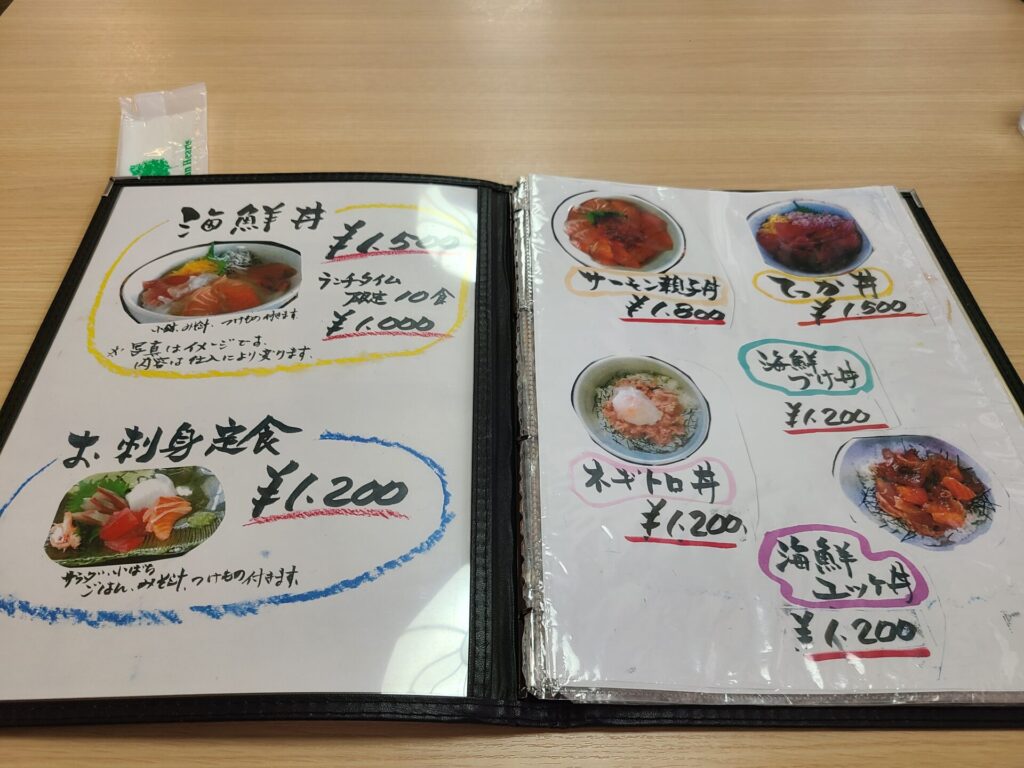 海鮮丼
¥1,500
ランチタイム
限定 10食
¥1,000
小鉢、みそ汁、つけもの付きます
※写真はイメージです。
内容は仕入により変ります。
お刺身定食
¥1,200
サラダ、小ばち
ごはん、みそ汁、つけもの付きます。
サーモン親子丼
¥1,800
てっか丼
¥1,500
海鮮
づけ丼
¥1,200
ネギトロ丼
¥1,200
海鮮
ユッケ丼
¥1,200